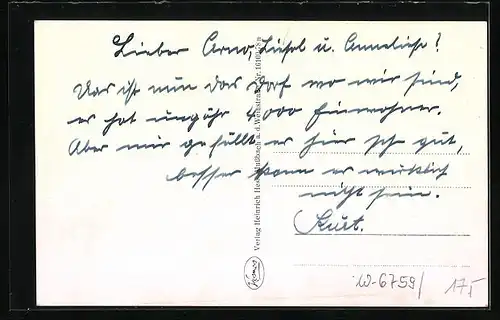 Lieber Arno, Liesel u. Anneliese!
Das ist nun das Dorf wo wir sind,
es hat ungefähr 4000 Einwohner.
Aber mir gefällt es hier sehr gut,
besser kann es wirklich
nicht sein.
Kurt.
Verlag Heinrich
W-6759/
175